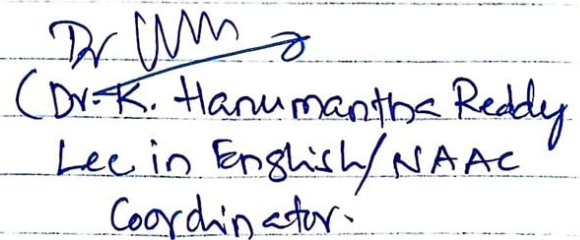 Dr
(Dr. K. Hanumantha Reddy
Lec in English/NAAC
Coordinator.